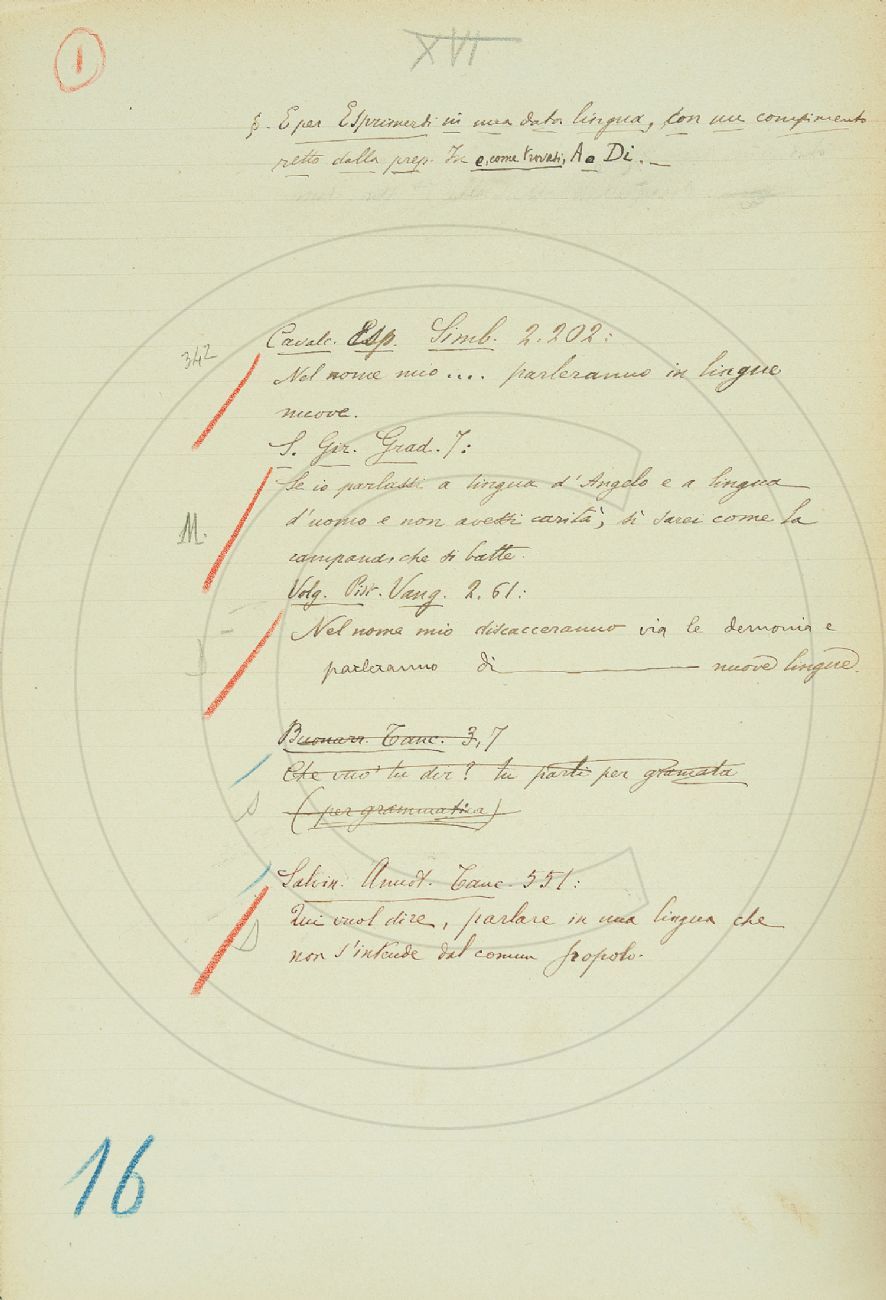 1
XVI
§. E per Esprimersi in una data lingua, con un compimento
retto dalla prep. In e, come trovasi, A o Di. _
342
Cavalc. Esp. Simb. 2.202:
Nel nome mio.... parleranno in lingue
nuove.
S. Gir. Grad. 7:
Se io parlassi a lingua d'Angelo e a lingua
M.
d'uomo e non avessi carità, sì sarei come la
campana, che si batte.
Volg. Pist. Vang. 2.61:
Nel nome mio discacceranno via le demonia e
parleranno di nuove lingue.
Buonarr. Tanc. 3,7
Che vuo' tu dir? tu parli per gramata
(per grammatica)
Salvin. Annot. Tanc. 551:
Qui vuol dire, parlare in una lingua che
non s'intende dal comun popolo.
16